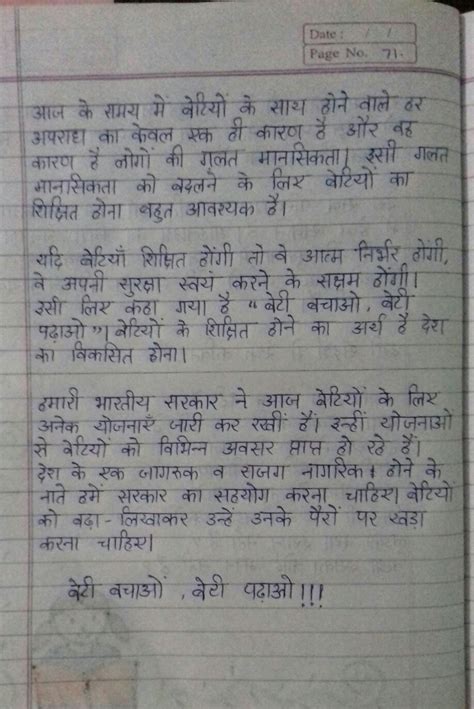 Date : / /
Page No. 71.
आज के समय में बेटियों के साथ होने वाले हर
अपराध का केवल एक ही कारण है और वह
कारण है लोगों की गलत मानसिकता। इसी गलत
मानसिकता को बदलने के लिए बेटियों का
शिक्षित होना बहुत आवश्यक है।
यदि बेटियाँ शिक्षित होंगी तो वे आत्म निर्भर होंगी,
वे अपनी सुरक्षा स्वयं करने के सक्षम होंगी।
इसी लिए कहा गया है “बेटी बचाओ, बेटी
पढ़ाओ”। बेटियों के शिक्षित होने का अर्थ है देश
का विकसित होना।
हमारी भारतीय सरकार ने आज बेटियों के लिए
अनेक योजनाएँ जारी कर रखीं हैं। इन्हीं योजनाओ
से बेटियों को विभिन्न अवसर प्राप्त हो रहे हैं।
देश के एक जागरुक व सजग नागरिक होने के
नाते हमें सरकार का सहयोग करना चाहिए। बेटियों
को पढ़ा - लिखाकर उन्हें उनके पैरों पर खड़ा
करना चाहिए।
बेटी बचाओं , बेटी पढ़ाओ !!!